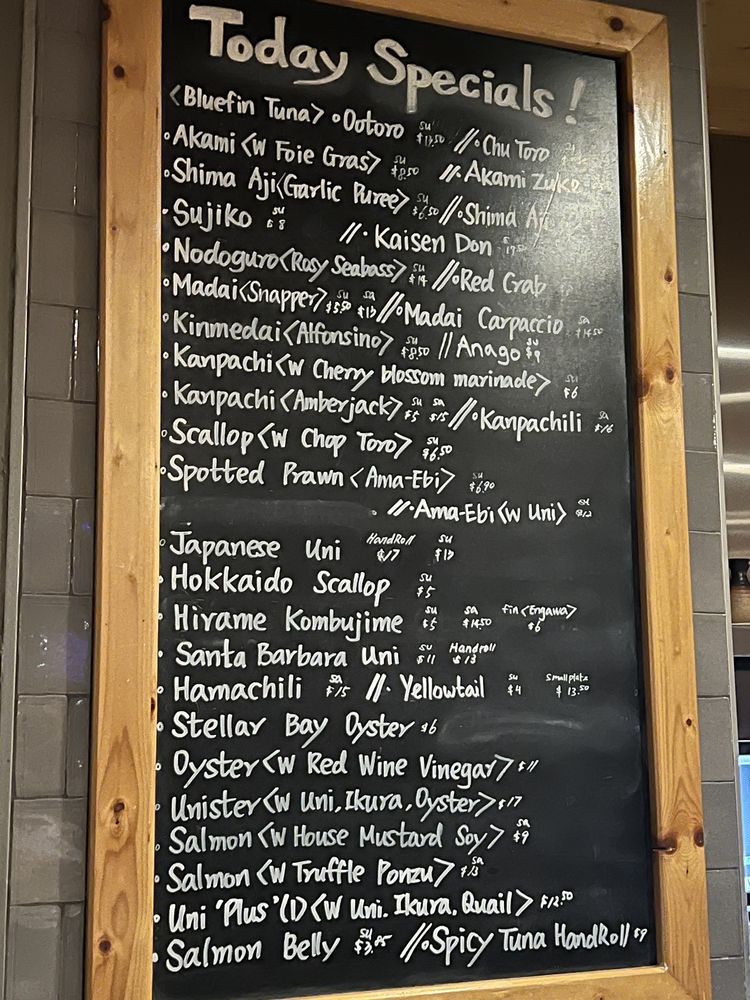 Today Specials!
<Bluefin Tuna> • Ootoro su //• Chu Toro
• Akami <w Foie Gras> su $8.50 //• Akami Zuke
• Shima Aji <Garlic Puree> su $6.50 //• Shima Aji
• Sujiko su $8 //• Kaisen Don
• Nodoguro <Rosy Seabass> su $14 //• Red Crab
• Madai <Snapper> su $5.50 sa $13 //• Madai Carpaccio sa $14.50
• Kinmedai <Alfonsino> su $8.50 // Anago su $9
• Kanpachi <w Cherry blossom marinade> su $6
• Kanpachi <Amberjack> su $5 sa $15 //• Kanpachili sa $16
• Scallop <w Chop Toro> su $6.50
• Spotted Prawn <Ama-Ebi> su $6.90
//• Ama-Ebi <w Uni> su
• Japanese Uni HandRoll $17 su $13
• Hokkaido Scallop su $5
• Hirame Kombujime su $5 sa $14.50 fin <Engawa> $6
• Santa Barbara Uni su $11 Handroll $13
• Hamachili sa $15 //• Yellowtail su $4 Small plate $13.50
• Stellar Bay Oyster $6
• Oyster <w Red Wine Vinegar> $11
• Unister <w Uni, Ikura, Oyster> $17
• Salmon <w House Mustard Soy> sa $9
• Salmon <w Truffle Ponzu> sa $13
• Uni 'Plus' (1) <w Uni. Ikura. Quail> $12.50
• Salmon Belly su //• Spicy Tuna HandRoll $9